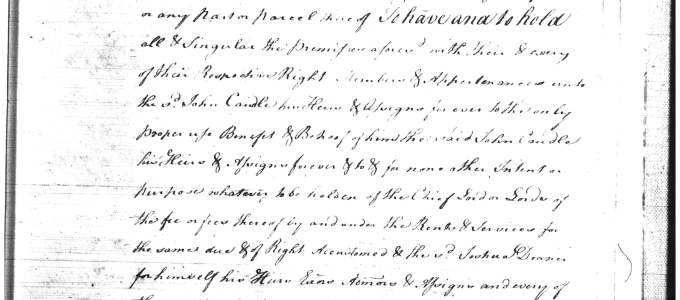 or any part or parcel thereof To have and to hold
all & Singular the premises aforesd. with their & every
of their Respective Right Members & Appertenances unto
the sd. John Caudle his Heirs & Assigns for ever to the only
proper use Benefit & Behoof of him the said John Caudle
his Heirs & Assigns forever & to & for none other Intent or
purpose whatever to be holden of the Chief Lord or Lords of
the fee or fees thereof by and under the Rents & Services for
the same due & of Right Accustomed & the sd. Joshua
for himself his Heirs Exors Admors & Assigns and every of